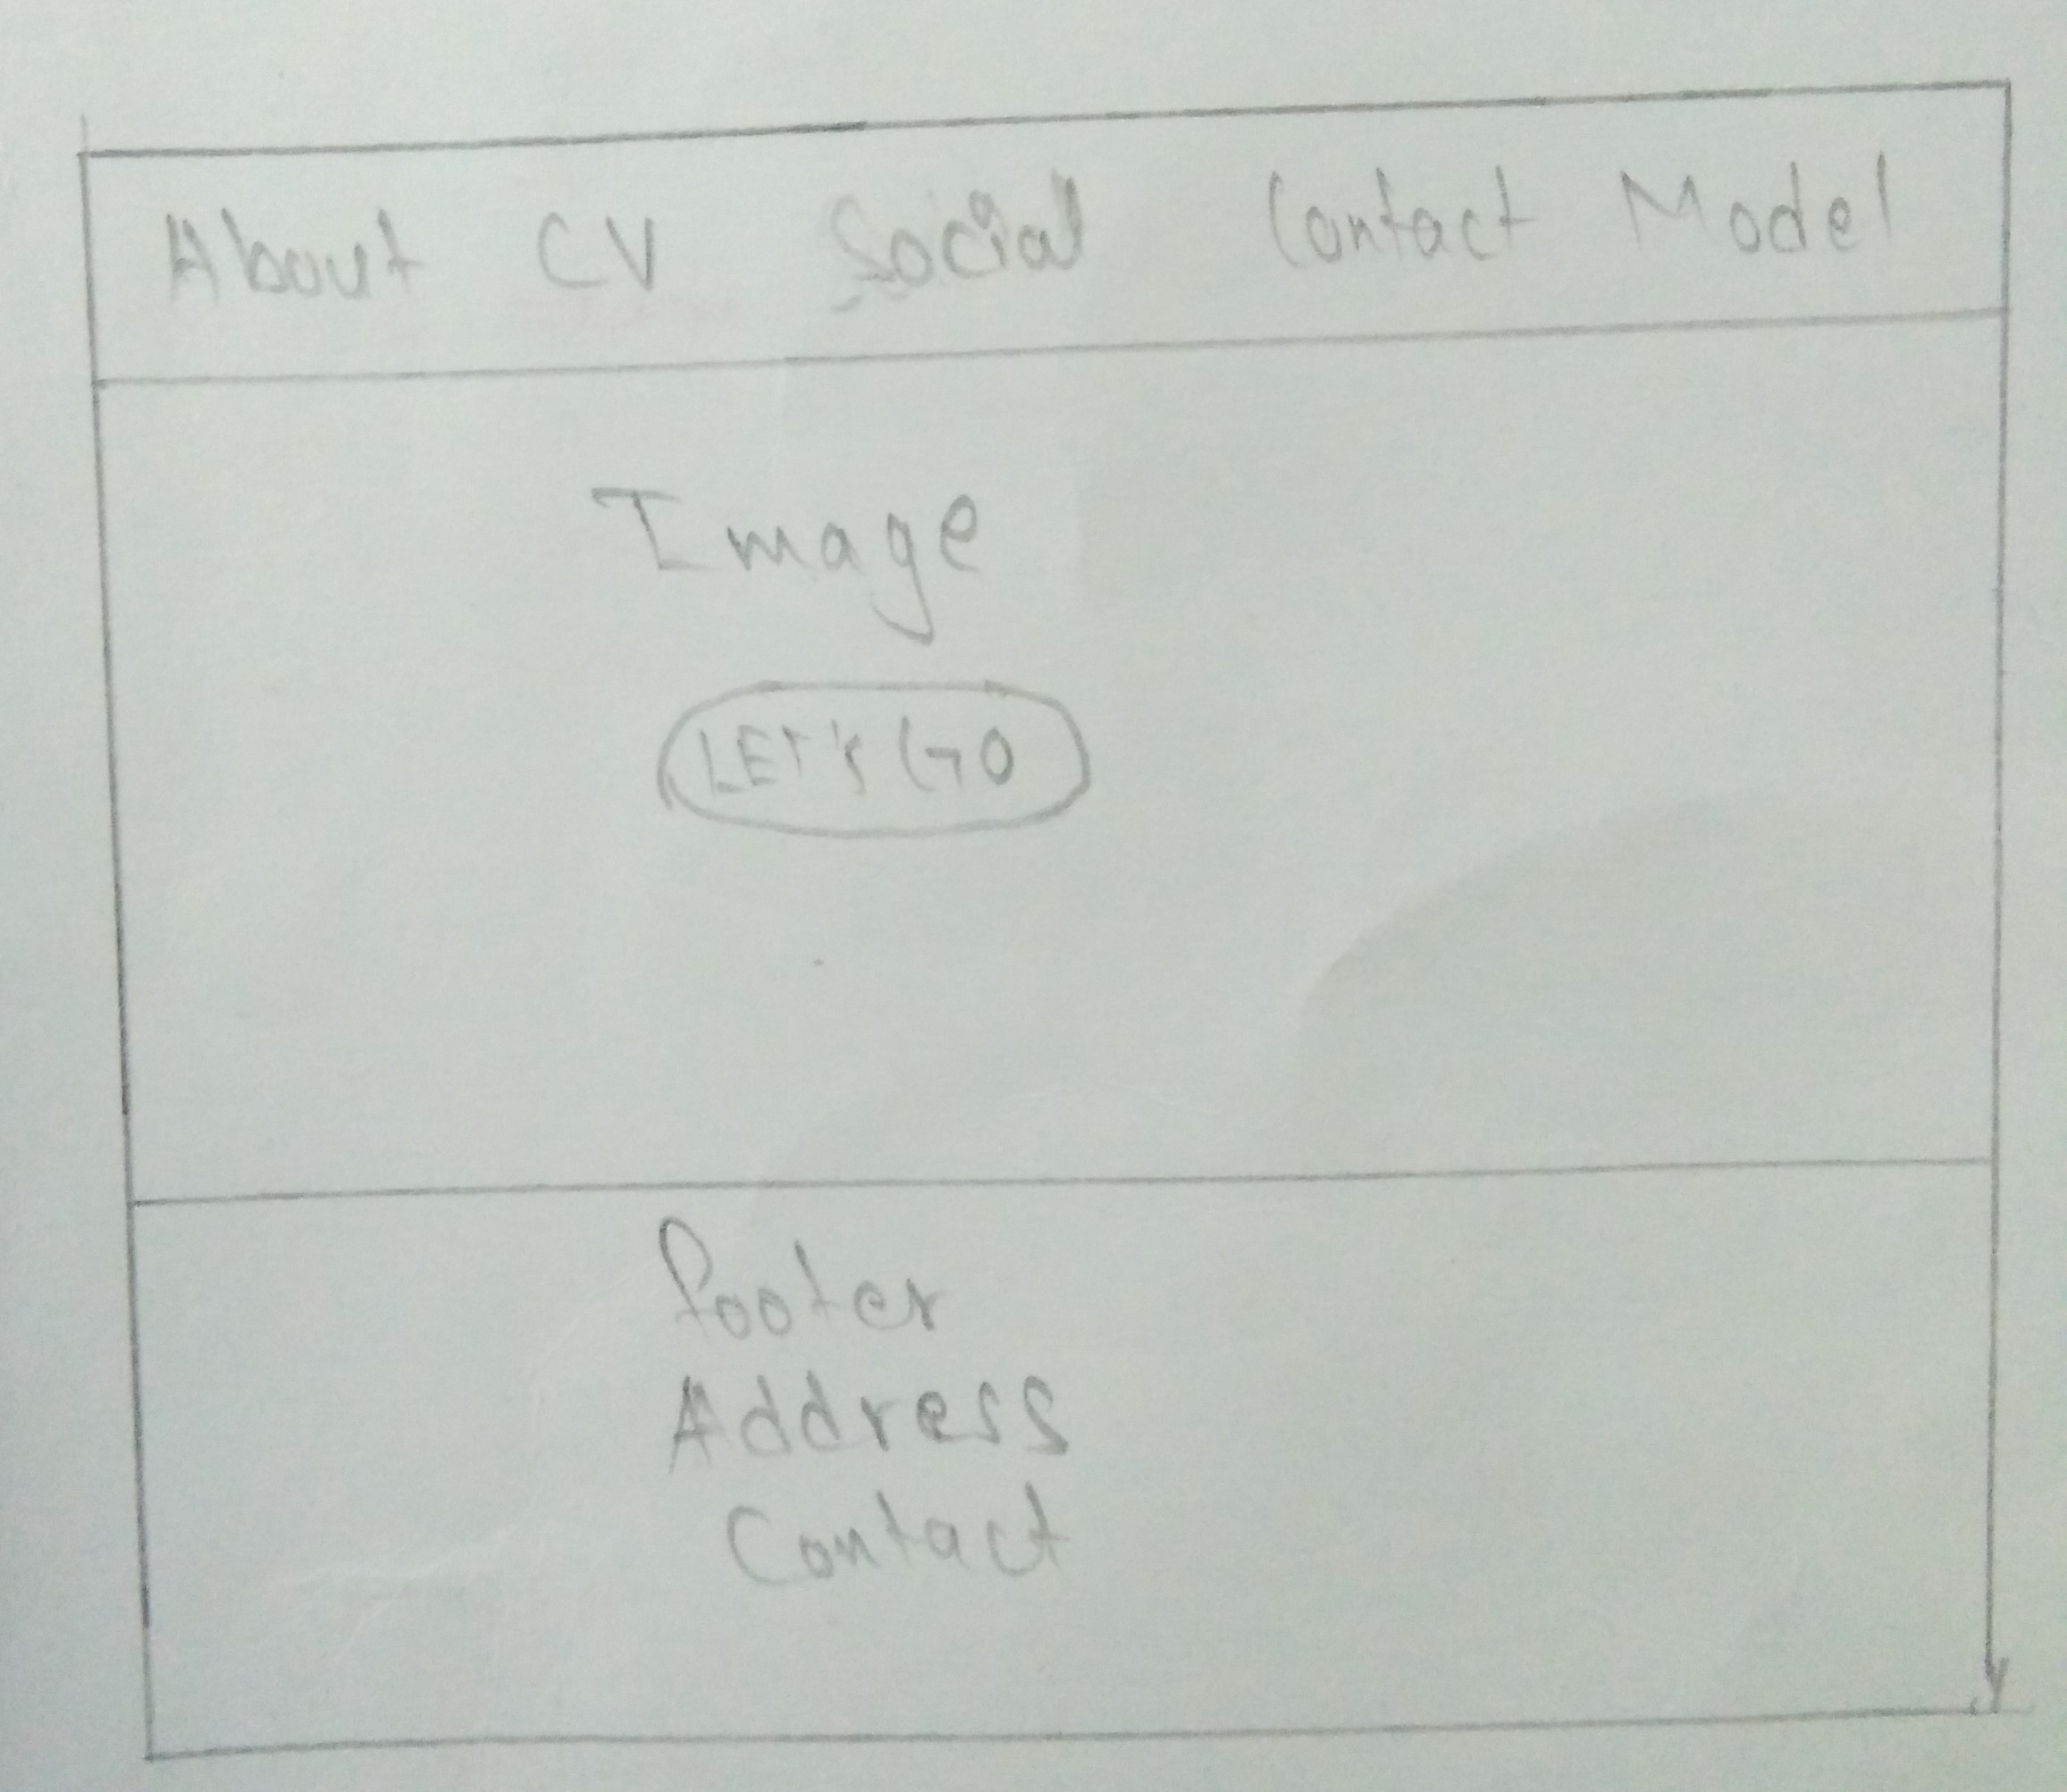 About CV Social Contact Model
Image
LET'S GO
footer
Address
Contact